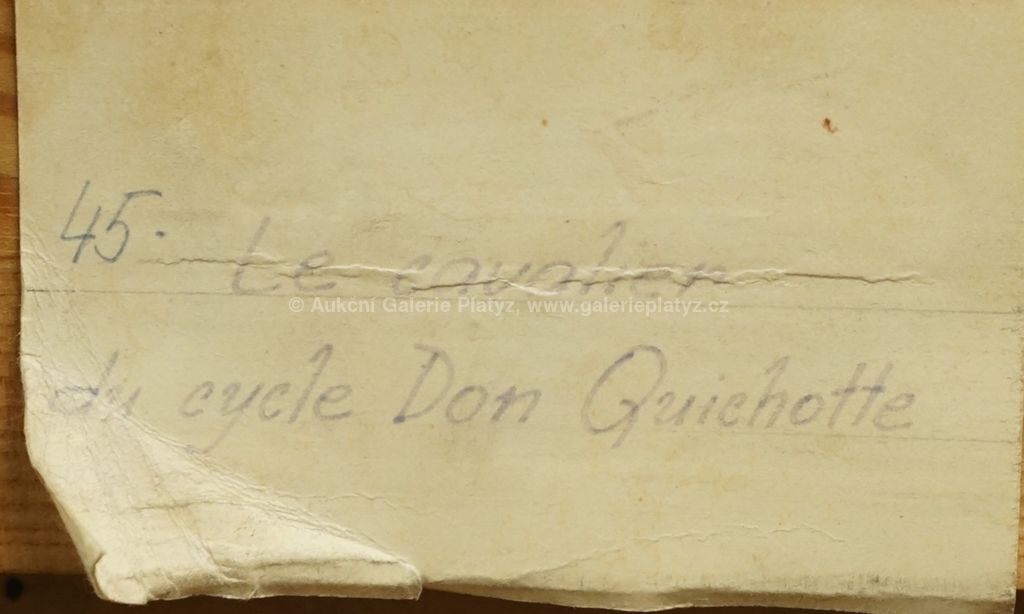 45. Le cavalier
© Aukční Galerie Platýz, www.galerieplatyz.cz
du cycle Don Quichotte